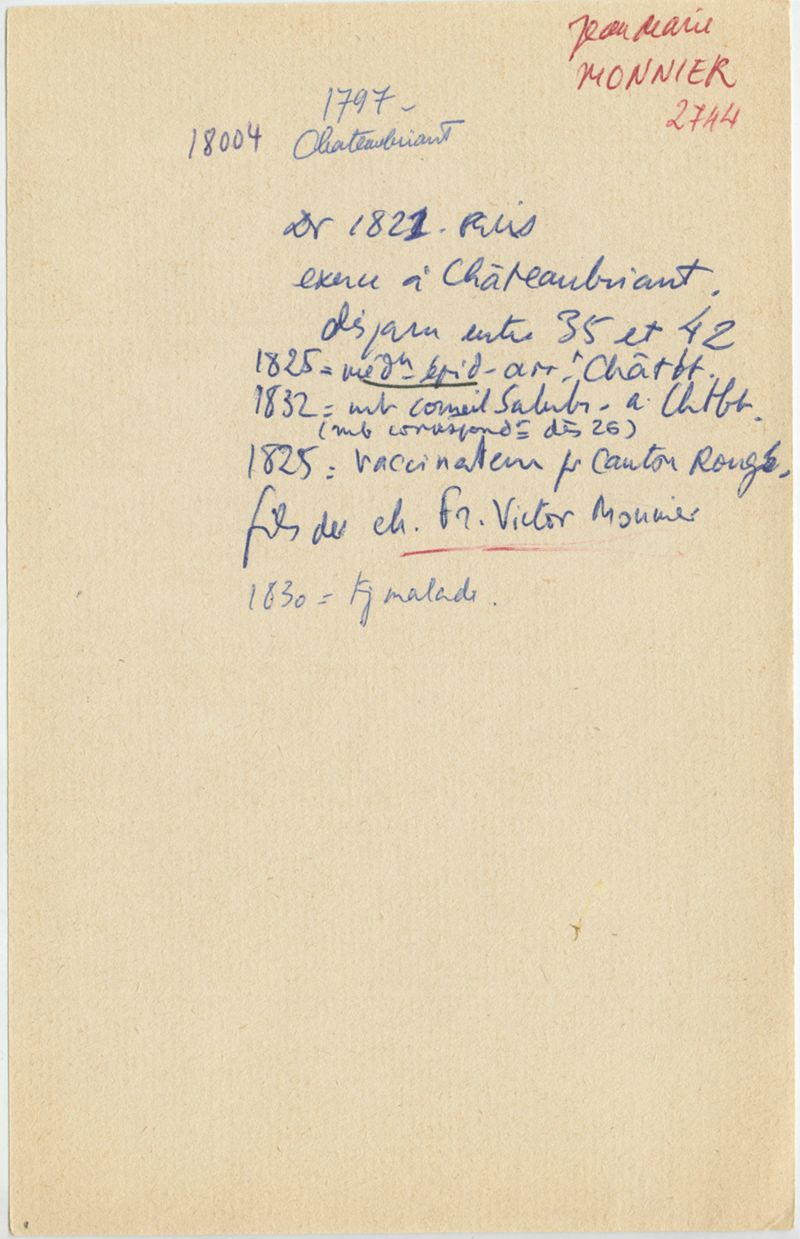 Jean Marie
MONNIER
2744
1797 -
18004 Chateaubriant
Dr 1821. Paris
exerce à Châteaubriant.
disparu entre 35 et 42
1825 = médn épid - arrt Châtbt.
1832 = mb conseil Salubr - à Chtbt.
(mb correspondt dès 26)
1825 = vaccinateur pr Canton Rougé.
fils du ch. Fr. Victor Monnier
1830 = malade.